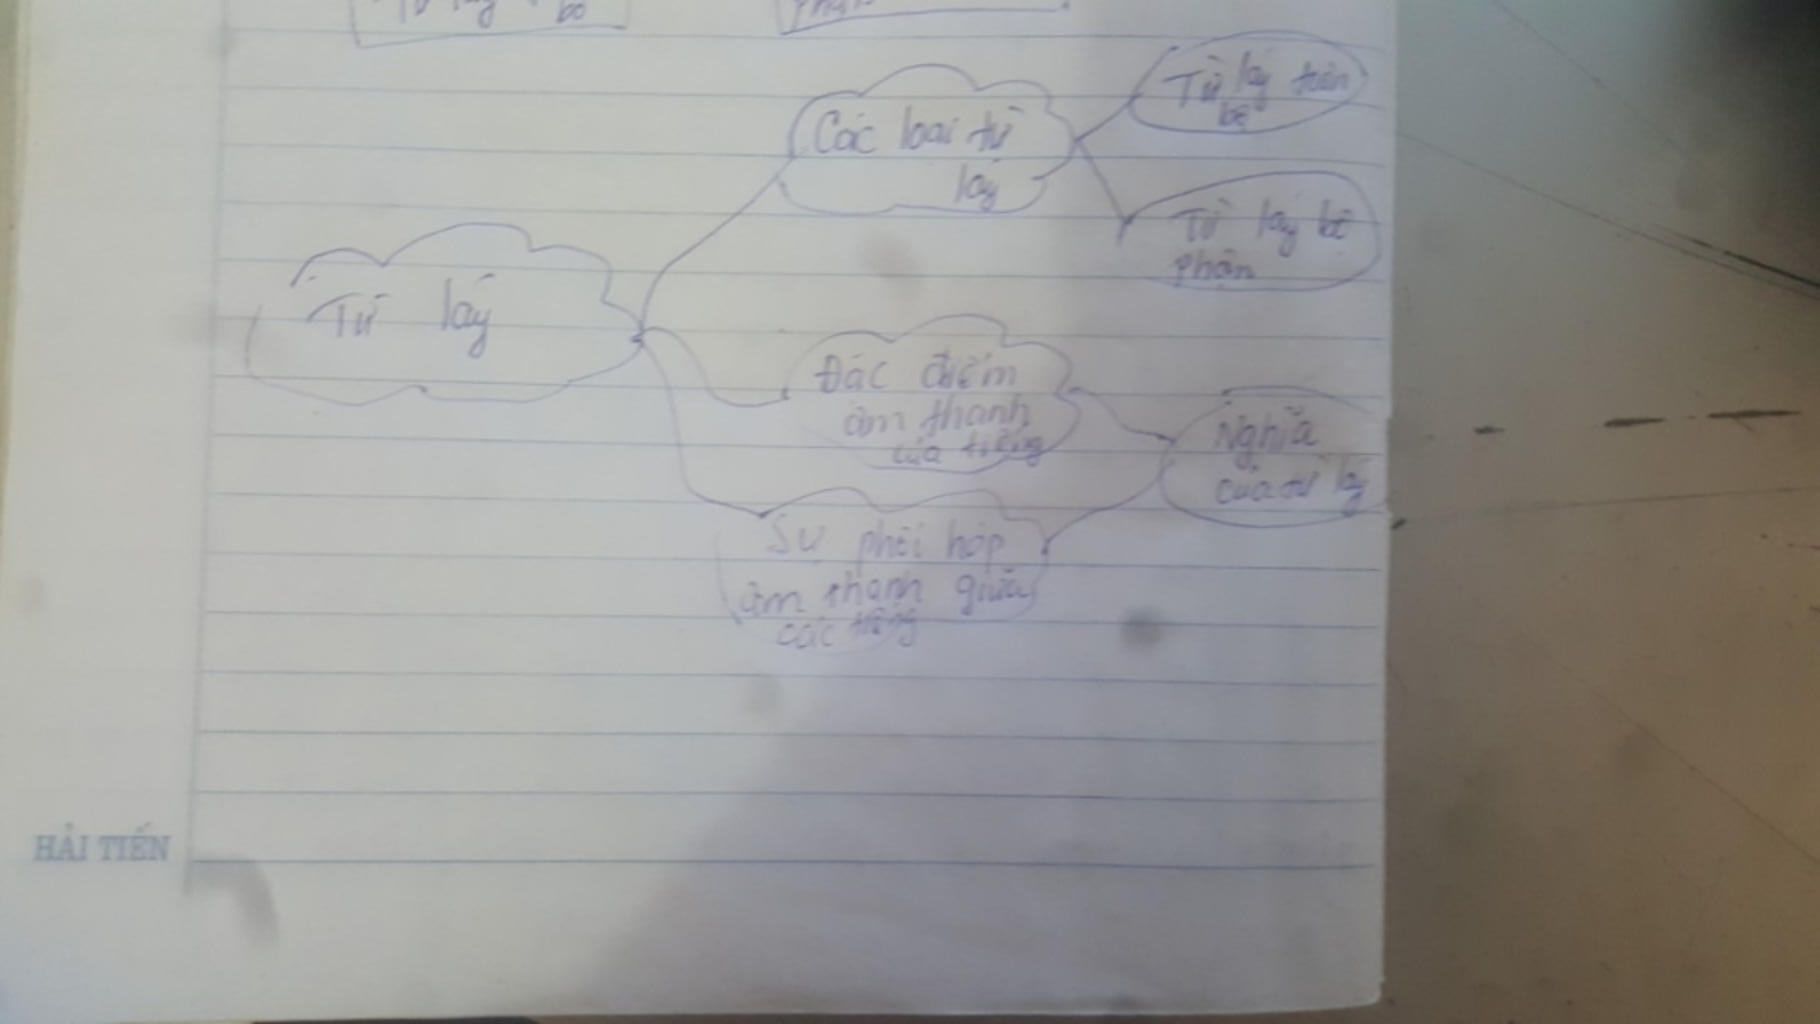 Từ láy bộ
phận
Từ láy
Các loại từ
láy
Từ láy toàn
bộ
Từ láy bộ
phận
Đặc điểm
âm thanh
của tiếng
Sự phối hợp
âm thanh giữa
các tiếng
Nghĩa
của từ láy
HẢI TIẾN